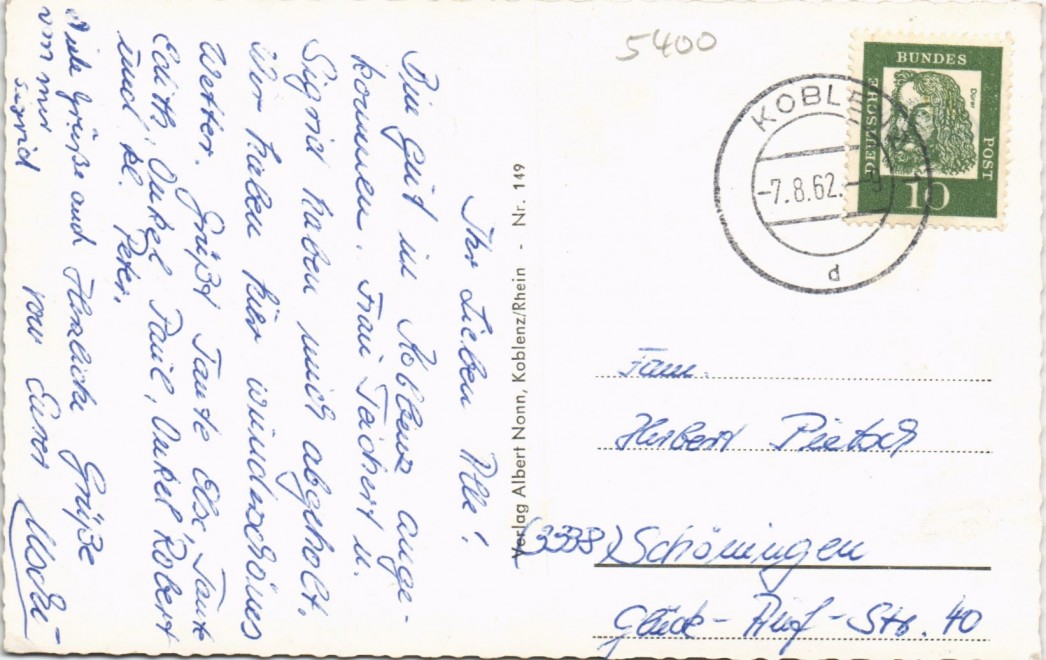 Ihr Lieben Alle!
Bin gut in Koblenz ange-
kommen. Frau Tachert u.
Sigrid haben mich abgeholt.
Wir haben hier wunderschönes
Wetter. Grüßt Tante Else, Tante
Edith, Onkel Paul, Onkel Robert
und kl. Peter.
Viele Grüße auch Herzliche Grüße
von mir von Eurer
Sigrid
Verlag Albert Nonn, Koblenz/Rhein - Nr. 149
5400
KOBLENZ
-7.8.62.
d
DEUTSCHE
BUNDES
POST
Dürer
10
Fam.
Herbert Pietsch
(3338) Schöningen
Str. 40